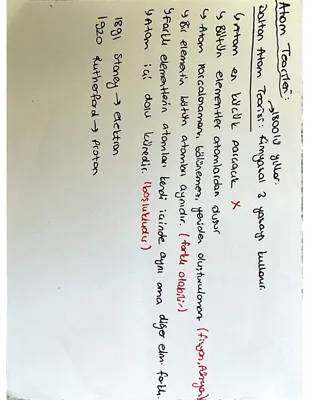 Atom Teorileri:
→1800'lü yıllar.
Dalton Atom Teorisi: Kimyasal 3 yasayı kullanır.
↳ Atom en küçük parçacık X
↳ Bütün elementler atomlardan oluşur
↳ Atom parçalanamaz, bölünemez, yeniden oluşturulamaz (fisyon,
↳ Bir elementin bütün atomları aynıdır. (farklı olabilir)
↳ Farklı elementlerin atomları kendi içinde aynı ama diğer elm. farklı.
↳ Atom içi dolu küredir. (boşlukludur)
1891 Stoney → elektron
1920 Rutherford → proton